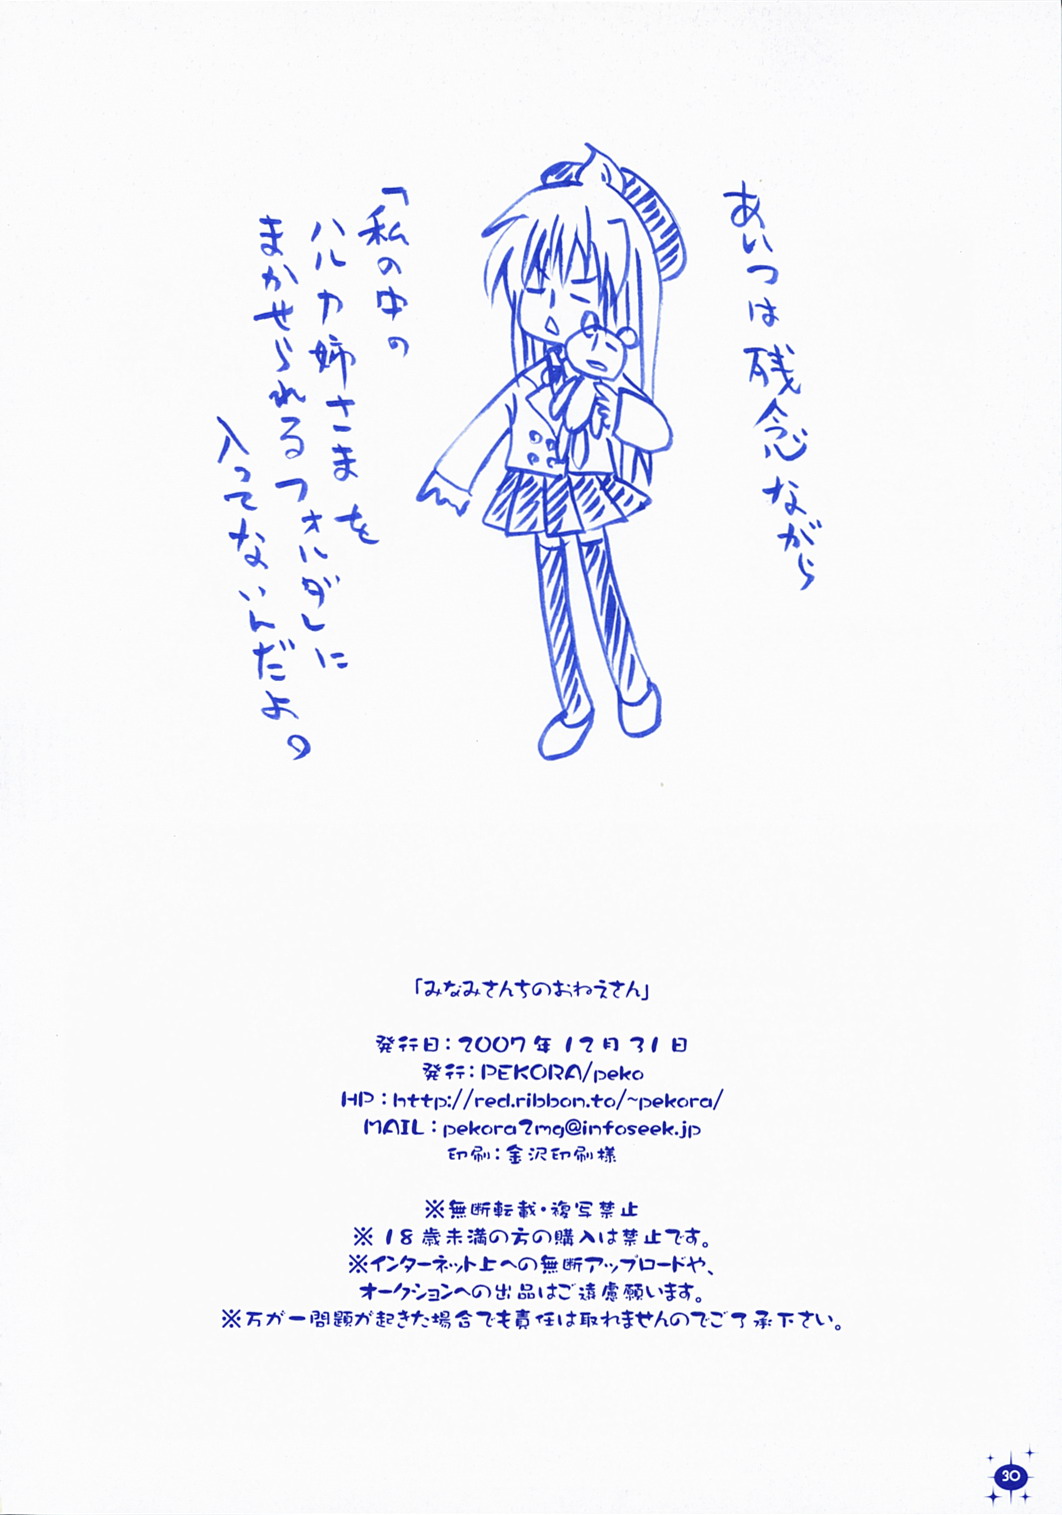 あいつは残念ながら
「私の中の
ハルカ姉さまを
まかせられるフォルダに
入ってないんだよ。
「みなみさんちのおねえさん」
発行日：2007年12月31日
発行：PEKORA/peko
HP：http://red.ribbon.to/~pekora/
MAIL：pekora2mg@infoseek.jp
印刷：金沢印刷様
※無断転載・複写禁止
※18歳未満の方の購入は禁止です。
※インターネット上への無断アップロードや、
オークションへの出品はご遠慮願います。
※万が一問題が起きた場合でも責任は取れませんのでご了承下さい。
30